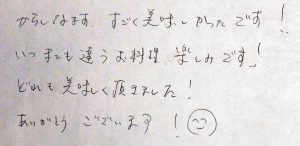 からしなます すごく美味しかったです!
いつも違うお料理、楽しみです!
どれも美味しく頂きました!
ありがとう ございます!